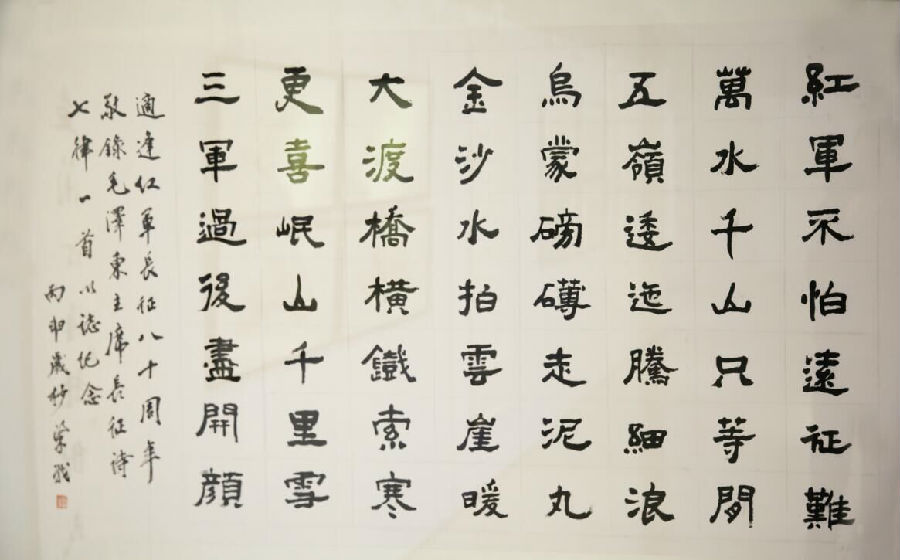 紅軍不怕遠征難
萬水千山只等閒
五嶺逶迤騰細浪
烏蒙磅礴走泥丸
金沙水拍雲崖暖
大渡橋橫鐵索寒
更喜岷山千里雪
三軍過後盡開顏
適逢紅軍長征八十周年
敬錄毛澤東主席長征詩
七律一首以誌紀念
丙申歲杪